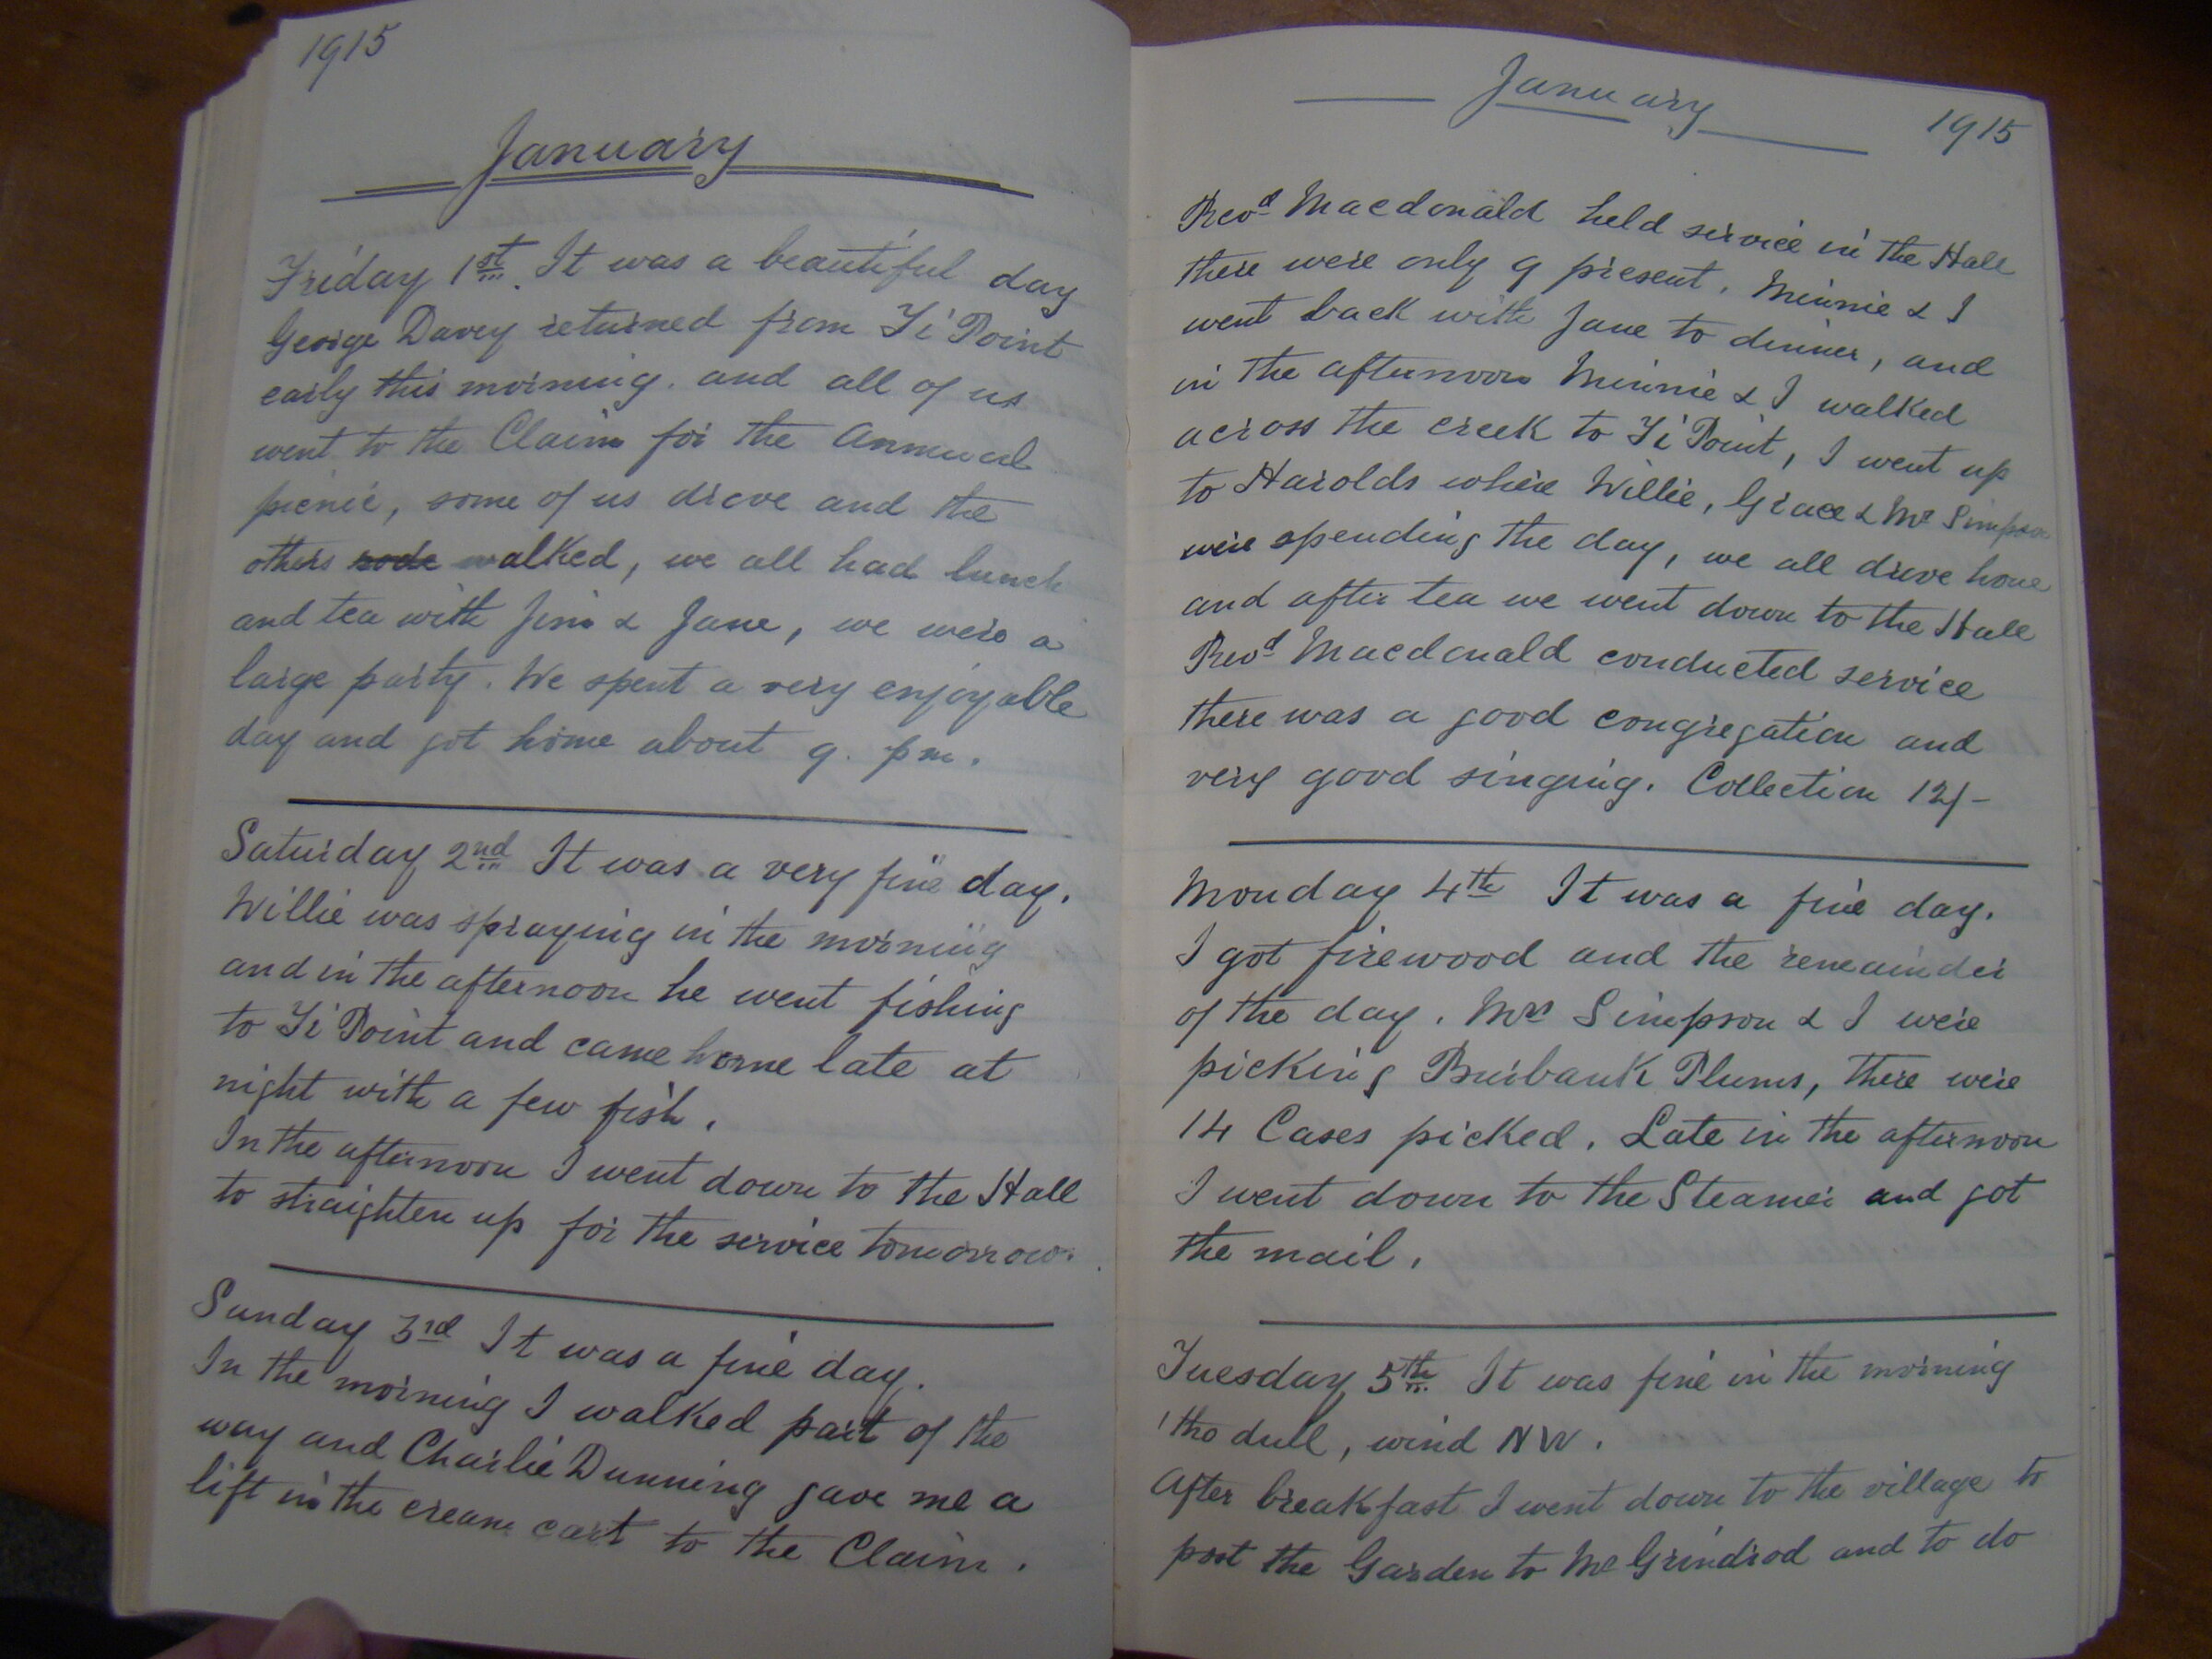 1915
January
Friday 1st. It was a beautiful day
George Davey returned from Ti Point
early this morning. and all of us
went to the Claim for the annual
picnic, some of us drove and the
others rode walked, we all had lunch
and tea with Jim & Jane, we were a
large party. We spent a very enjoyable
day and got home about 9. pm.
Saturday 2nd It was a very fine day.
Willie was spraying in the morning
and in the afternoon he went fishing
to Ti Point and came home late at
night with a few fish.
In the afternoon I went down to the Hall
to straighten up for the service tomorrow.
Sunday 3rd It was a fine day.
In the morning I walked part of the
way and Charlie Dunning gave me a
lift in the cream cart to the Claim.
January
1915
Revd Macdonald held service in the Hall
there were only 9 present. Minnie & I
went back with Jane to dinner, and
in the afternoon Minnie & I walked
across the creek to Ti Point, I went up
to Harolds where Willie, Grace & Mr Simpson
were spending the day, we all drove home
and after tea we went down to the Hall
Revd Macdonald conducted service
there was a good congregation and
very good singing. Collection 12/-
Monday 4th It was a fine day.
I got firewood and the remainder
of the day. Mrs Simpson & I were
picking Burbank Plums, there were
14 Cases picked. Late in the afternoon
I went down to the Steamer and got
the mail.
Tuesday 5th. It was fine in the morning
'tho dull, wind NW.
After breakfast I went down to the village to
post the Garden to Mr Grindrod and to do